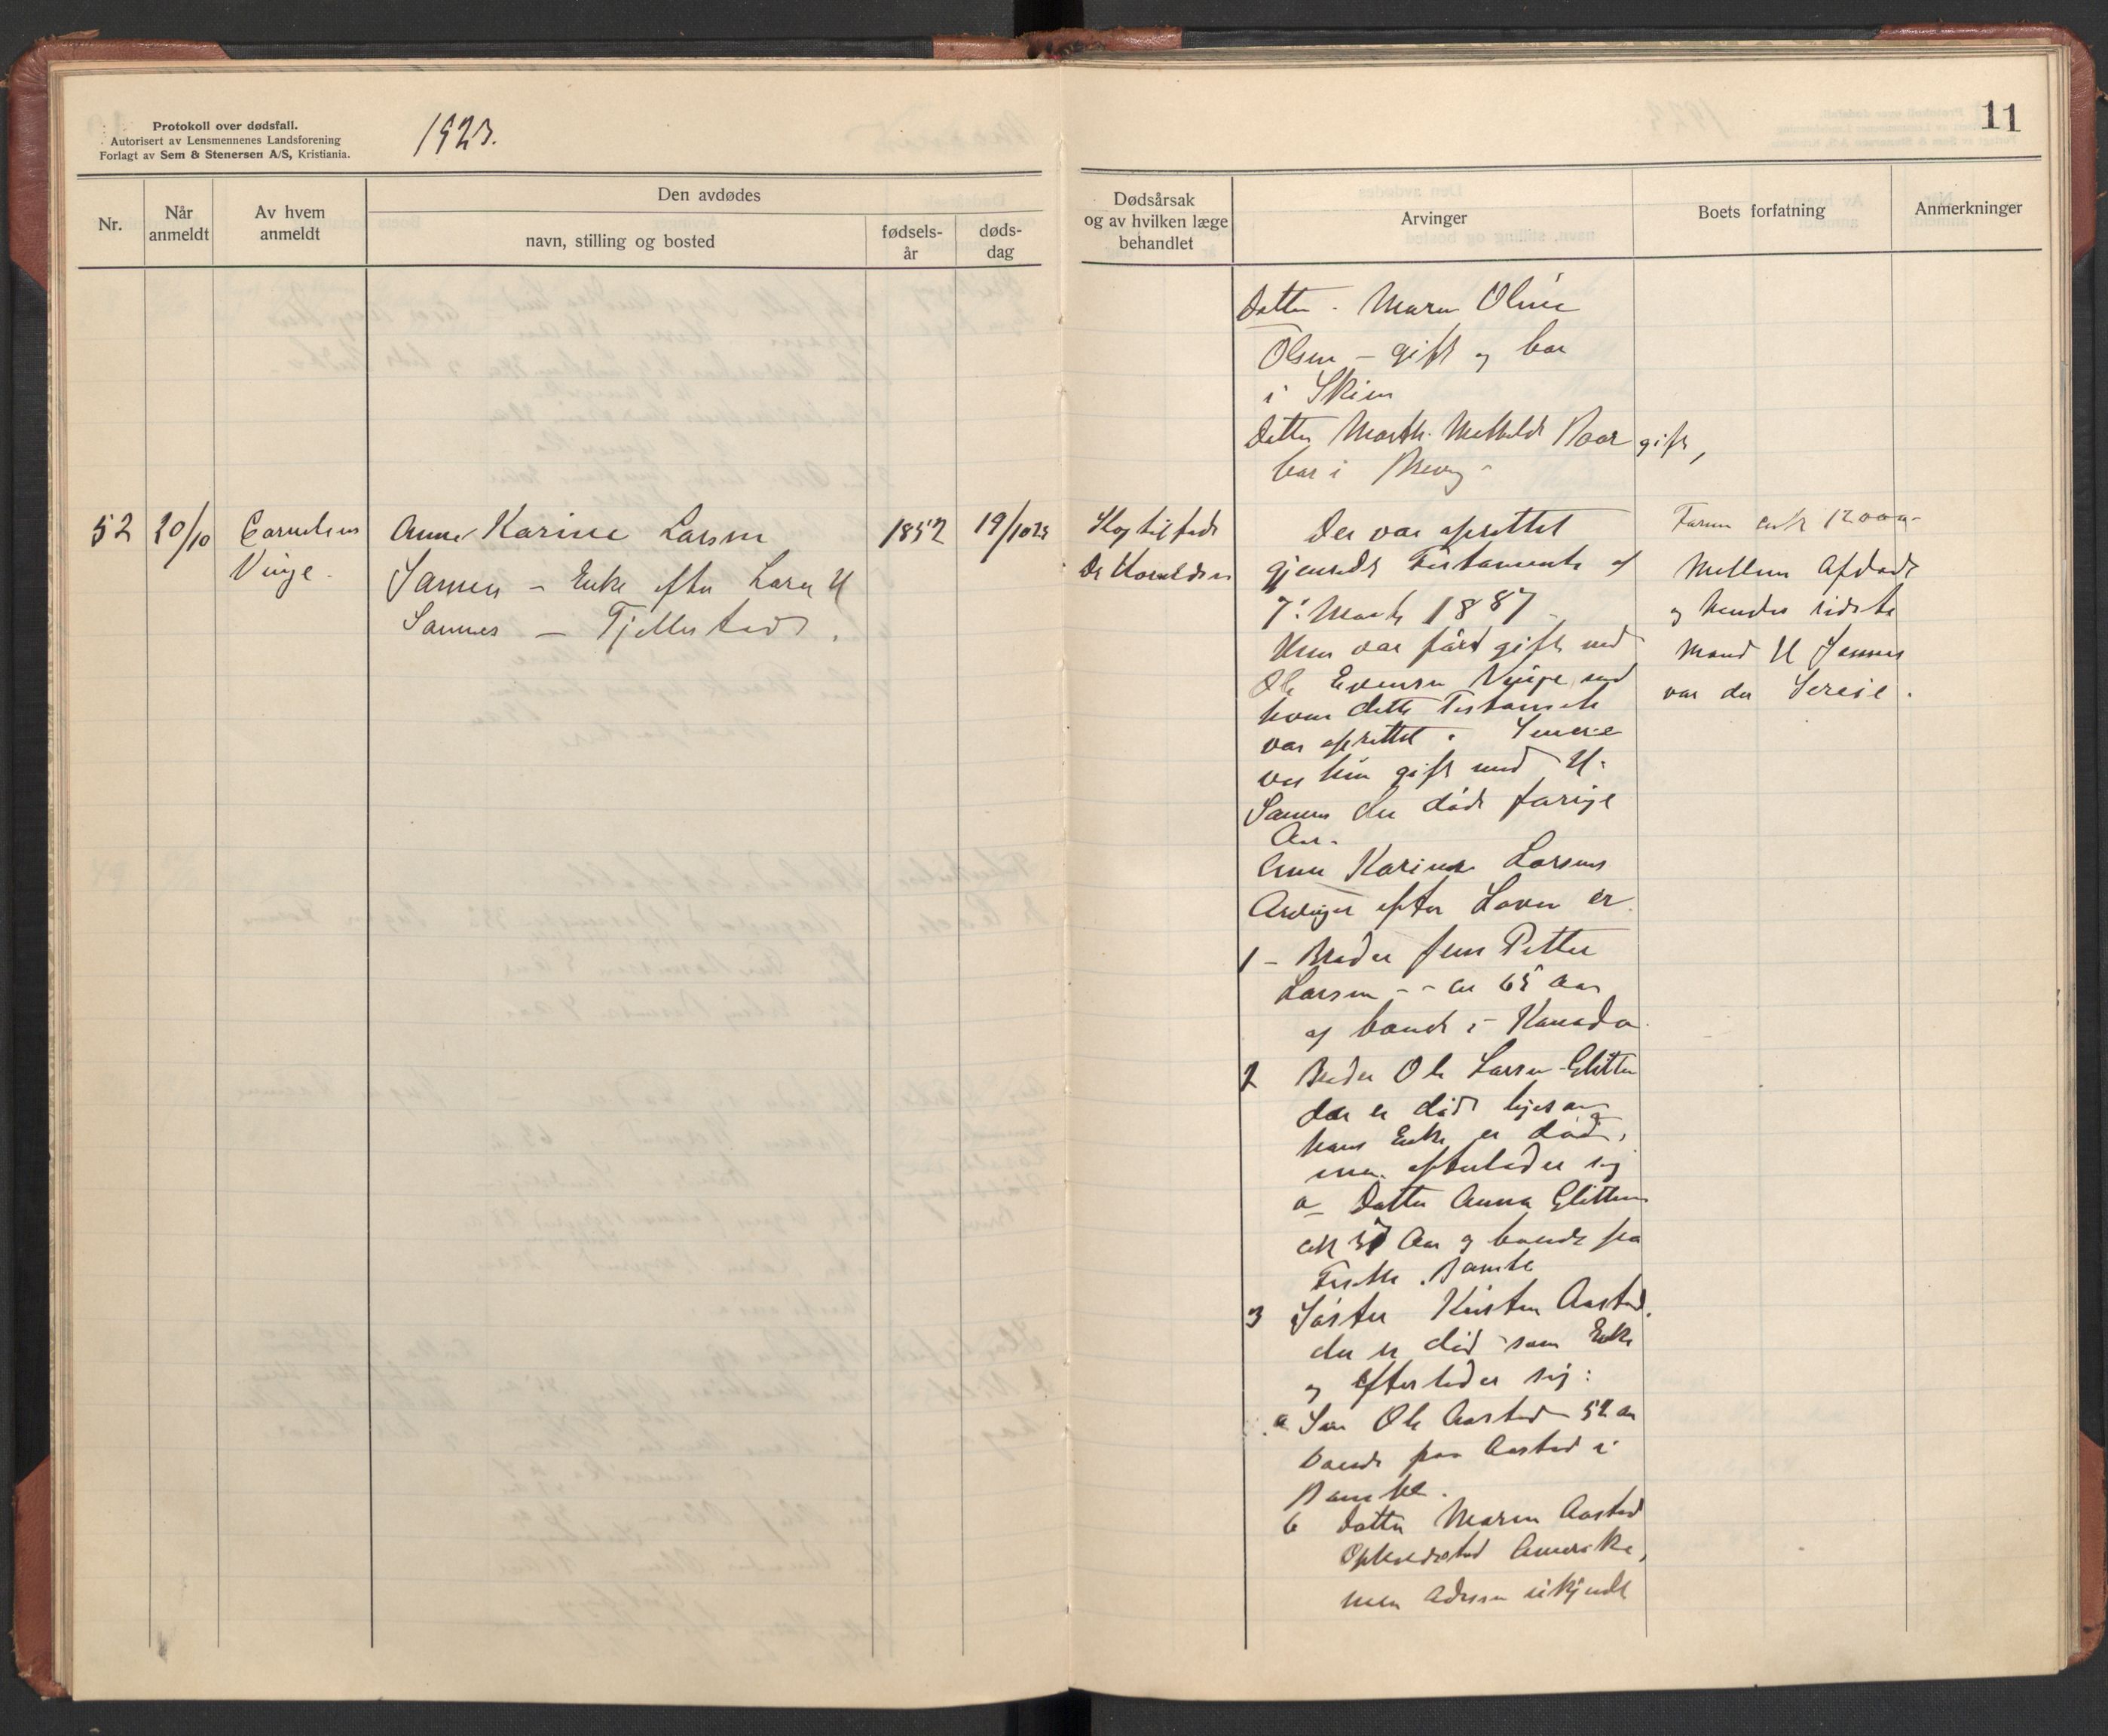 Protokoll over dødsfall.
Autorisert av Lensmennenes Landsforening
Forlagt av Sem & Stenersen A/S, Kristiania.
1923.
11
Nr.
Når anmeldt
Av hvem anmeldt
Den avdødes
navn, stilling og bosted
fødsels-år
døds-dag
Dødsårsak og av hvilken læge behandlet
Arvinger
Boets forfatning
Anmerkninger
Datter - Maren Oline
Olsen - gift og bor
i Skien
Datter Marth. Mathilde gift,
bor i
52 20/10 Cornelius
Vinje.
Anne Karine Larsen
Sannes - Enke efter Lars H
Sannes - Tjellestad.
1852
19/10 23
Dr
Der var oprettet
gjensidt Testamente af
7: Marts 1887
Hun var først gift med
Ole Evensen Vinje med
hvem dette Testamente
var oprettet. Senere
var hun gift med H.
Sannes der døde forrige
Aar.
Anne Karine Larsens
Arvinger efter Loven er
1 - Broder Jens Petter
Larsen - - ca 65 aar
og boende i Kanada
2 Broder Ole Larsen Glitter
der er død ligesom
hans Enke er død,
men efterlader sig
a - Datter Anna Glittum
Aar og boende paa
Bamble
3 Søster Kirsten Aastad
der er død som Enke
og efterlader sig:
a Søn Ole Aastad 52 aar
boende paa Aastad i
Bamble.
b Datter Maren Aastad
Opholdsted Amerika,
men adresse ukjendt
Formue 12000-
Mellem Afdøde
og hendes sidste
Mand H Sannes
var der Særeie.